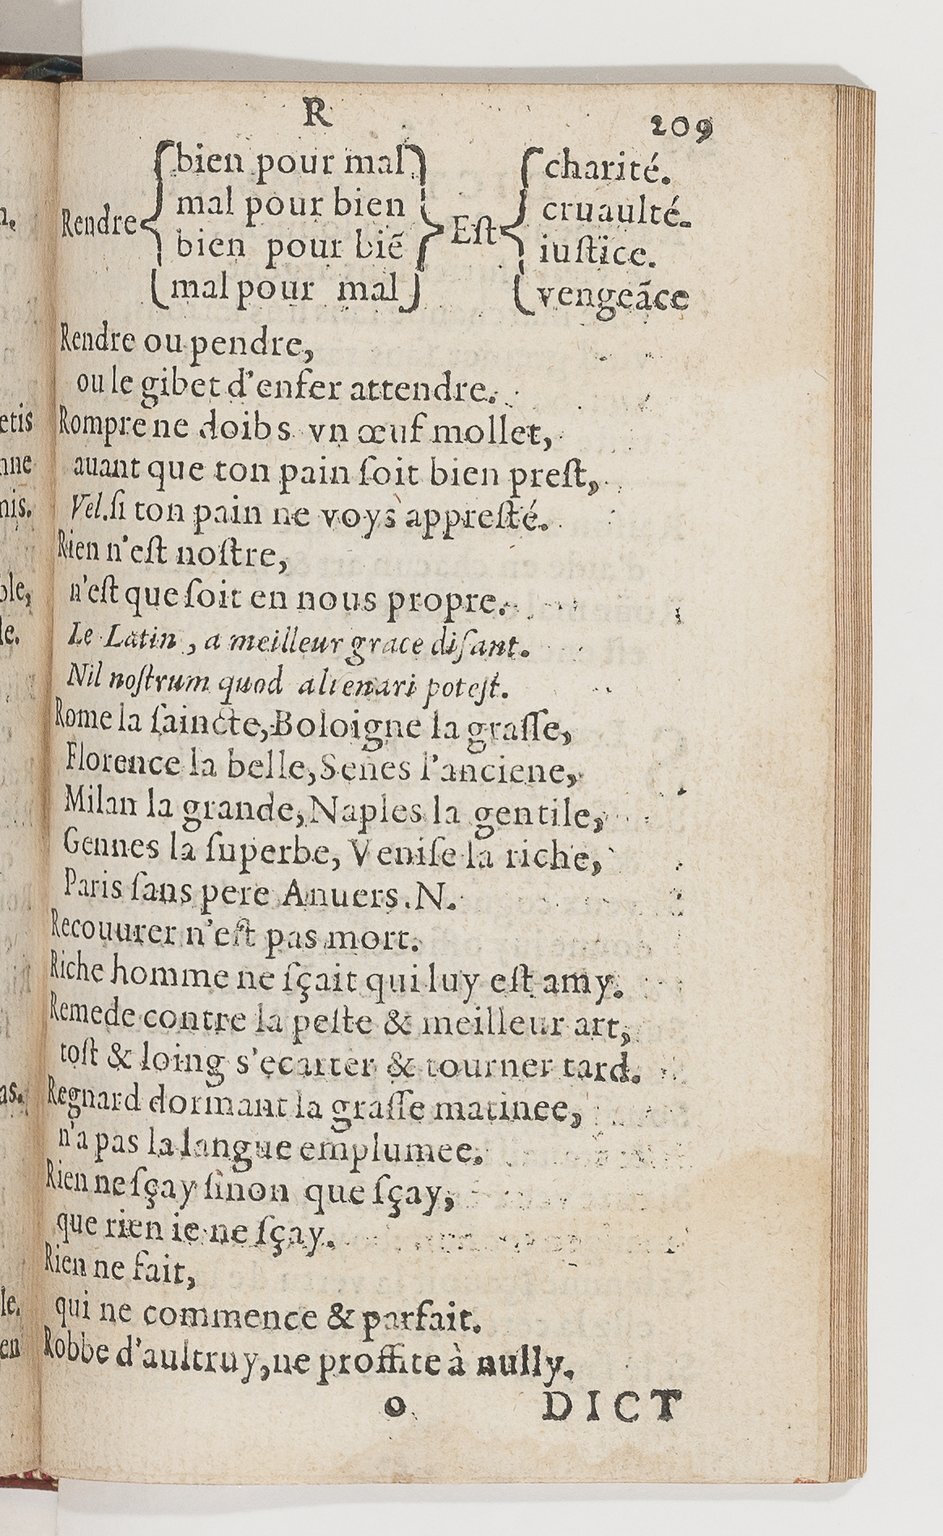 R 209
bien pour mal charité.
mal pour bien cruaulté.
Rendre Eſt
bien pour biẽ iuſtice.
mal pour mal vengeãce
Rendre ou pendre,
ou le gibet d'enfer attendre.
Rompre ne doibs vn œuf mollet,
auant que ton pain ſoit bien preſt,
Vel. ſi ton pain ne voys appreſté.
Rien n'eſt noſtre,
n'eſt que ſoit en nous propre.
Le Latin, a meilleur grace diſant.
Nil noſtrum quod alienari poteſt.
Rome la ſaincte, Boloigne la graſſe,
Florence la belle, Senes l'anciene,
Milan la grande, Naples la gentile,
Gennes la ſuperbe, Veniſe la riche,
Paris ſans pere Anuers. N.
Recouurer n'eſt pas mort.
Riche homme ne ſçait qui luy eſt amy.
Remede contre la peſte & meilleur art,
toſt & loing s'ecarter & tourner tard.
Regnard dormant la graſſe matinee,
n'a pas la langue emplumee.
Rien ne ſçay ſinon que ſçay,
que rien ie ne ſçay.
Rien ne fait,
qui ne commence & parfait.
Robbe d'aultruy, ne proffite à nully.
o DICT